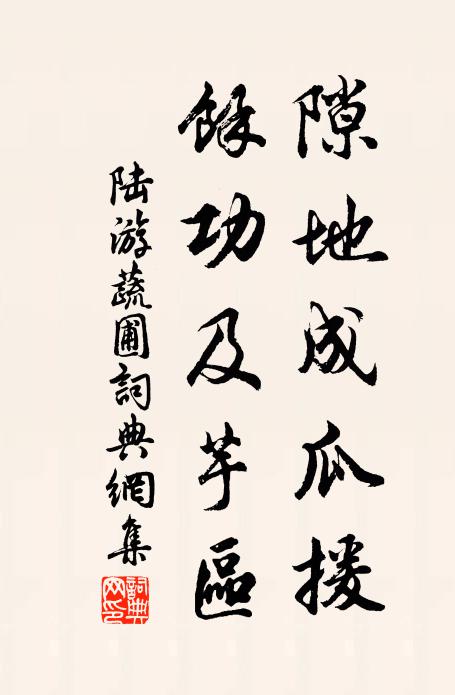 隙地成瓜援
餘功及芋區
陸游蔬圃詞典網集
詞典網印